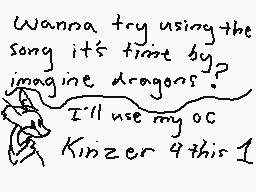 Wanna try using the
song it's time by
imagine dragons?
I'll use my OC
Kinzer 4 this 1